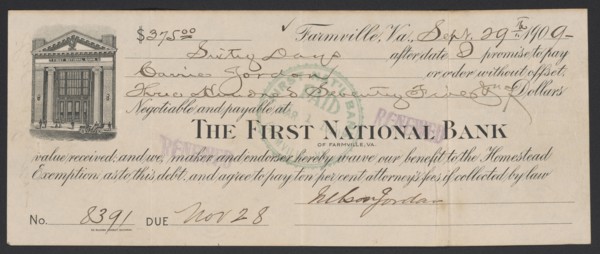 $375.00 Farmville, Va., Sept. 29th 1909
Sixty Days after date I promise to pay
Carrie Jordan or order without offset,
Three Hundred & Seventy Five Dollars
Negotiable and payable at
FIRST NATIONAL BANK
THE FIRST NATIONAL BANK
OF FARMVILLE, VA.
PAID
RENEWED
RENEWED
value received; and we, maker and endorser hereby waive our benefit to the Homestead
Exemption as to this debt, and agree to pay ten per cent attorney's fees if collected by law
No. 8391 DUE Nov 28
Jordan